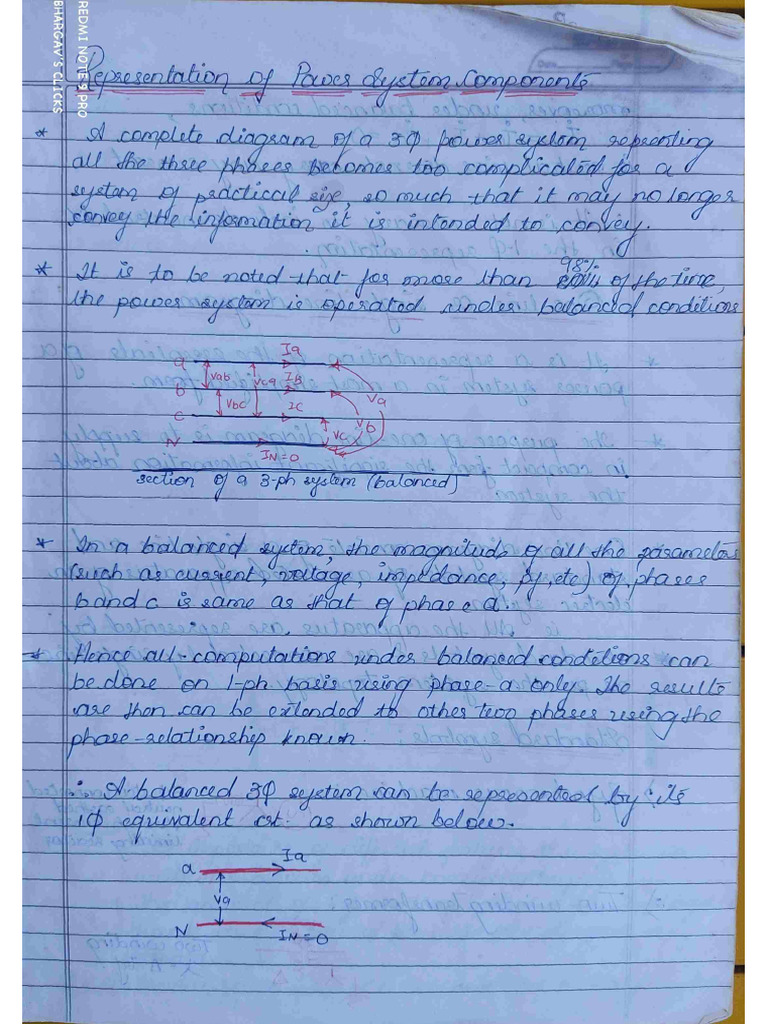 REDMI NOTE 9 PRO
BHARGAV'S CLICKS
Representation of Power System Components
* A complete diagram of a 3Φ power system repsenting
all the three phases becomes too complicated for a
system of practical size, so much that it may no longer
convey the information it is intended to convey.
98%
* It is to be noted that for more than of the time,
the power system is operated under balanced conditions
a Ia
Vab Vca Ib
b Va
Vbc Ic
c Vb
Vc
N IN=0
section of a 3-ph system (balanced)
* In a balanced system, the magnitude of all the parameters
(such as current, voltage, impedance, Pf, etc) of phases
b and c is same as that of phase a.
* Hence all computations under balanced conditions can
be done on 1-ph basis using phase-a only. The results
are then can be extended to other two phases using the
phase-relationship known.
∴ A balanced 3Φ system can be represented by its
1Φ equivalent ckt. as shown below.
a Ia
Va
N IN=0